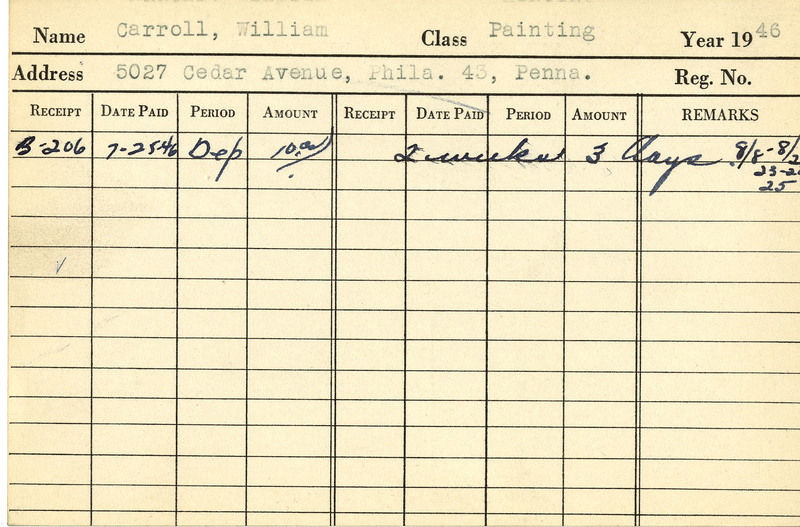 Name Carroll, William Class Painting Year 1946
Address 5027 Cedar Avenue, Phila. 43, Penna. Reg. No.
RECEIPT DATE PAID PERIOD AMOUNT RECEIPT DATE PAID PERIOD AMOUNT REMARKS
B-206 7-2546 Dep 10.00 2 weeks 3 days 8/8-8/2
23-2
25